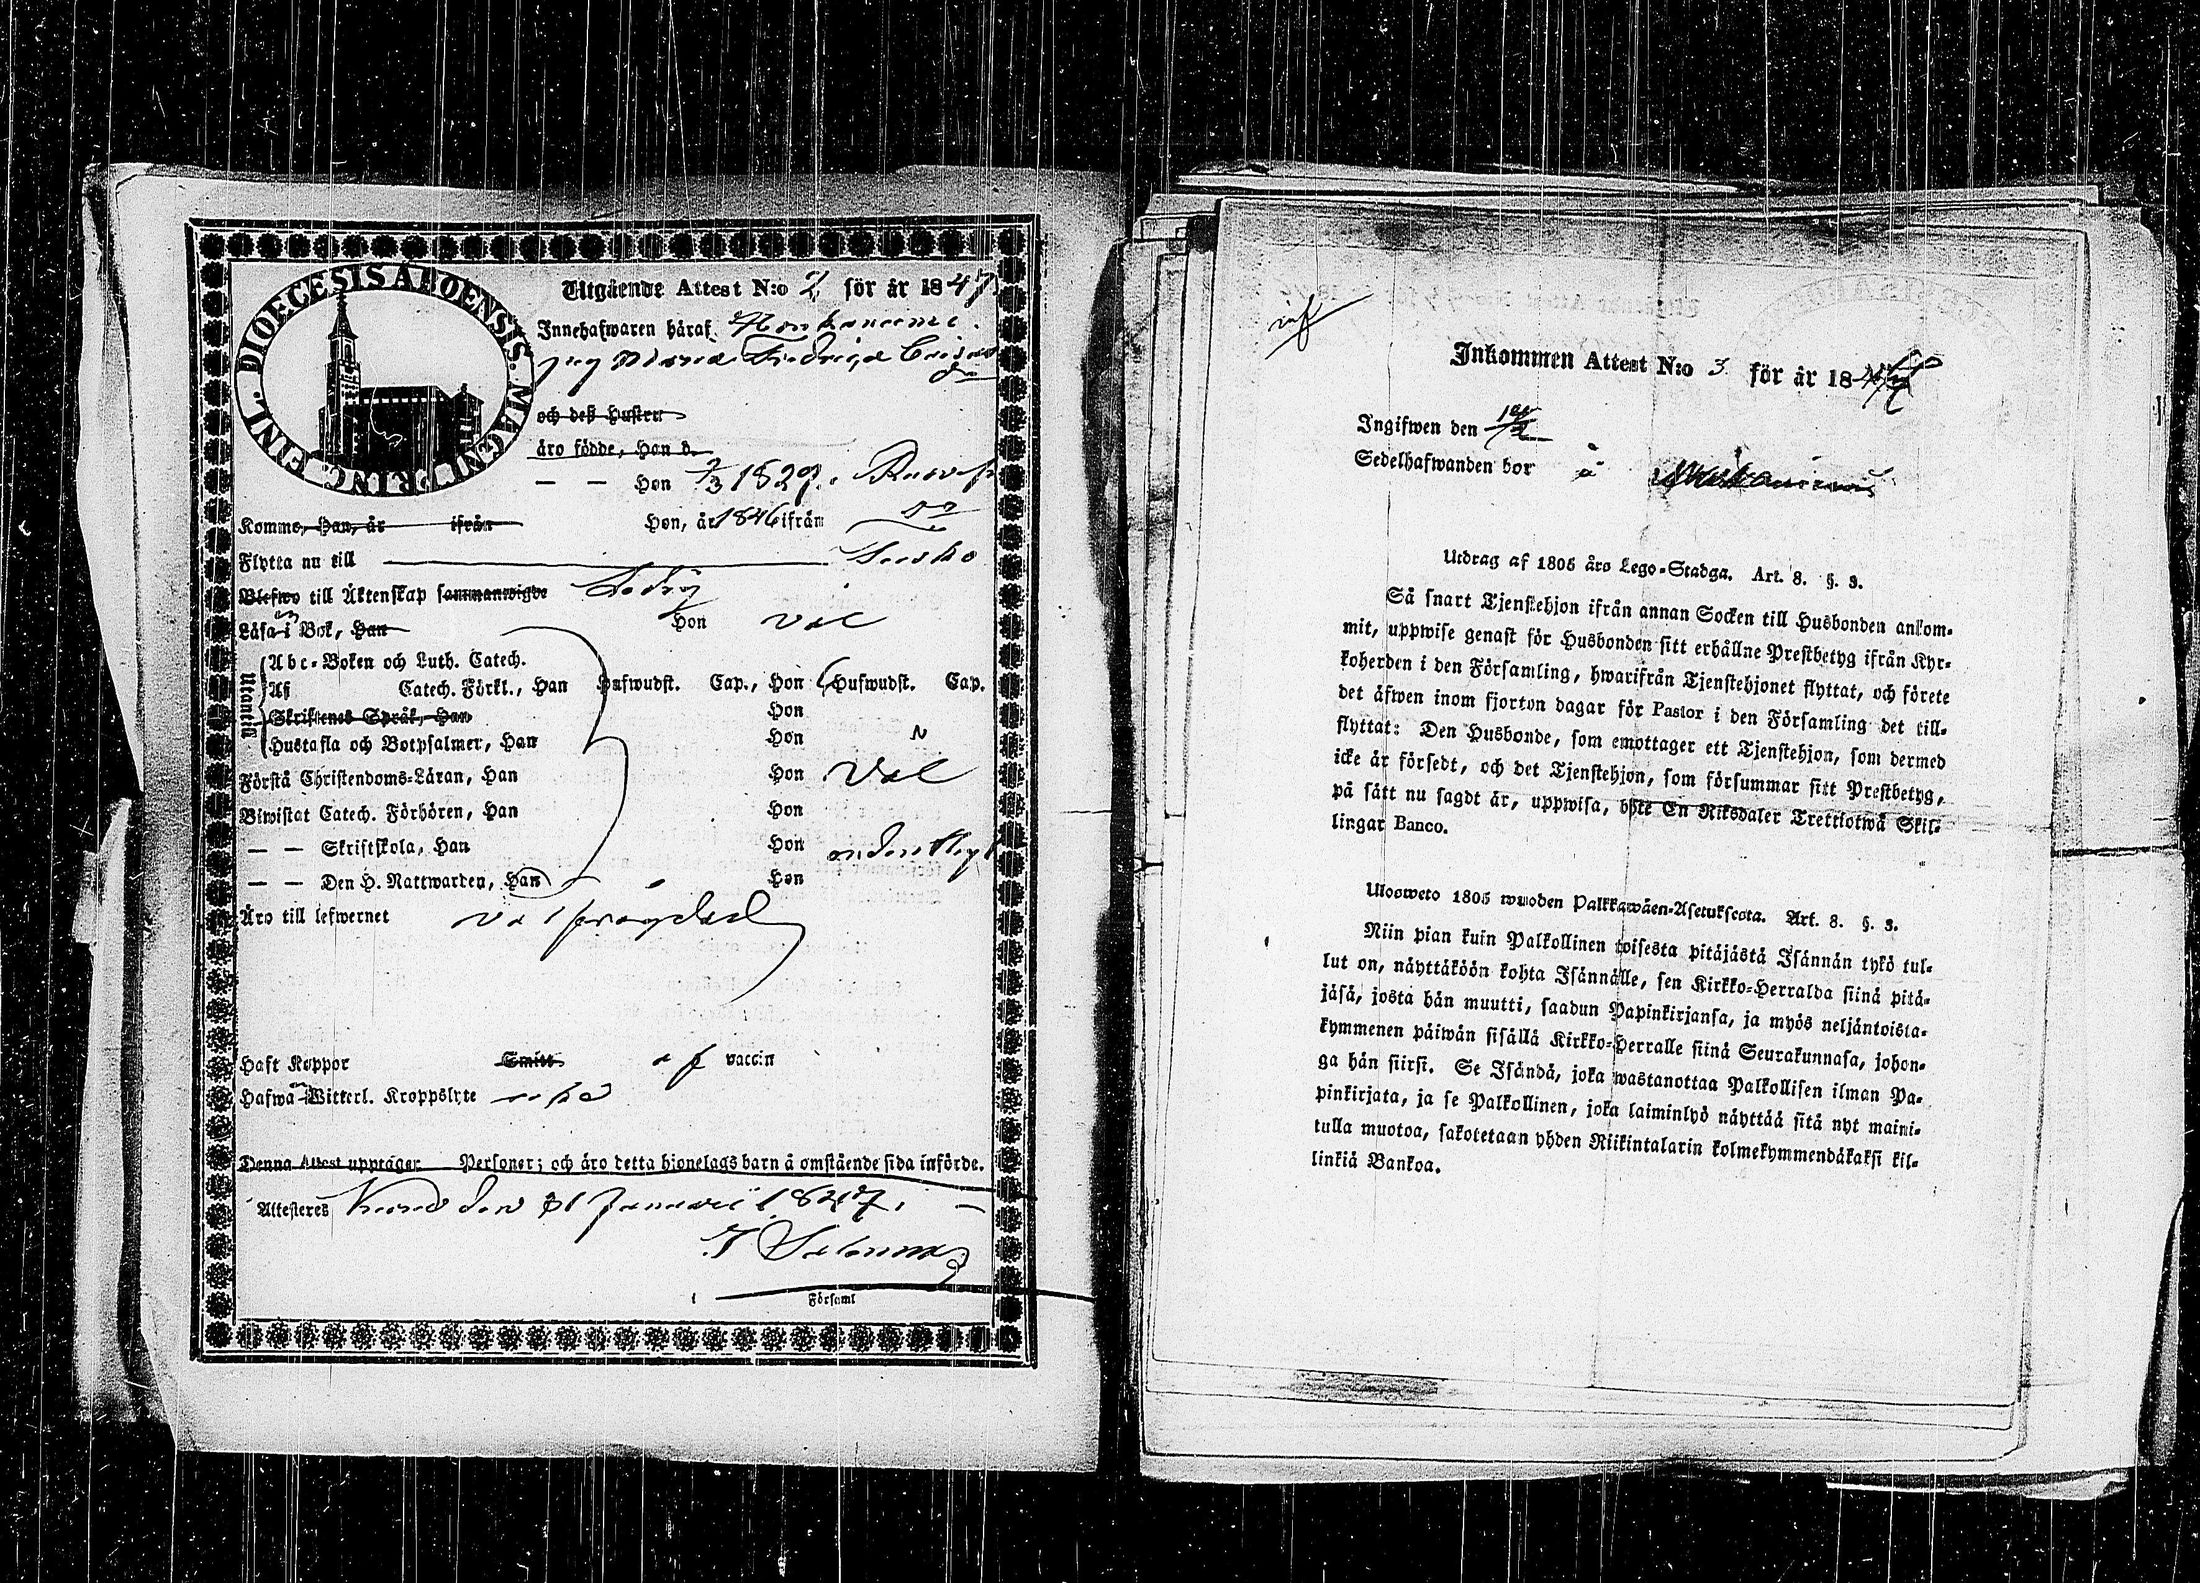 DIOECESIS ABOENSIS. MAGNI PRINC. FINL.
Utgående Attest N:o 2 för år 1847.
Innehafwaren häraf
pig Maria Fredrica
och deß Hustru
äro födde, Han d.
— — Hon 2/3 1829.
Kommo, Han, år ifrån Hon, år 1846 ifrån
Flytta nu till
Blefwo till Äktenskap sammanwigde Ledig
Läsa i Bok, Han Hon väl
Utantill
Abc-Boken och Luth. Catech.
Af Catech. Förkl., Han Hufwudst. Cap., Hon 6 Hufwudst. Cap.
Skriftenes Språk, Han Hon
Hustafla och Botpsalmer, Han Hon
Förstå Christendoms-Läran, Han Hon Väl
Biwistat Catech. Förhören, Han Hon
— — Skriftskola, Han Hon ordentligt
— — Den H. Nattwarden, Han Hon
Äro till lefwernet väl frägdad
Haft Koppor Smitt af vaccin
Hafwa Witterl. Kroppslyte icke
Denna Attest upptager Personer; och äro detta hjonelags barn å omstående sida införde.
Attesteres den 31 Januarii 1847.
Församl
inf
Inkommen Attest N:o 3 för år 1847
Ingifwen den
Sedelhafwanden bor å
Utdrag af 1805 års Lego-Stadga. Art. 8. §. 3.
Så snart Tjenstehjon ifrån annan Socken till Husbonden ankom-
mit, uppwise genast för Husbonden sitt erhållne Prestbetyg ifrån Kyr-
koherden i den Församling, hwarifrån Tjenstehjonet flyttat, och förete
det äfwen inom fjorton dagar för Pastor i den Församling det till-
flyttat: Den Husbonde, som emottager ett Tjenstehjon, som dermed
icke är försedt, och det Tjenstehjon, som försummar sitt Prestbetyg,
på sätt nu sagdt är, uppwisa, böte En Riksdaler Trettiotwå Skil-
lingar Banco.
Ulosweto 1805 wuoden Palkkawäen-Asetuksesta. Art. 8. §. 3.
Niin pian kuin Palkollinen toisesta pitäjästä Isännän tykö tul-
lut on, näyttäköön kohta Isännälle, sen Kirkko-Herralda siinä pitä-
jäsä, josta hän muutti, saadun Papinkirjansa, ja myös neljäntoista-
kymmenen päiwän sisällä Kirkko-Herralle siinä Seurakunnasa, johon-
ga hän siirsi. Se Isändä, joka wastanottaa Palkollisen ilman Pa-
pinkirjata, ja se Palkollinen, joka laiminlyö näyttää sitä nyt maini-
tulla muotoa, sakotetaan yhden Riikintalarin kolmekymmendäkaksi kil-
linkiä Bankoa.